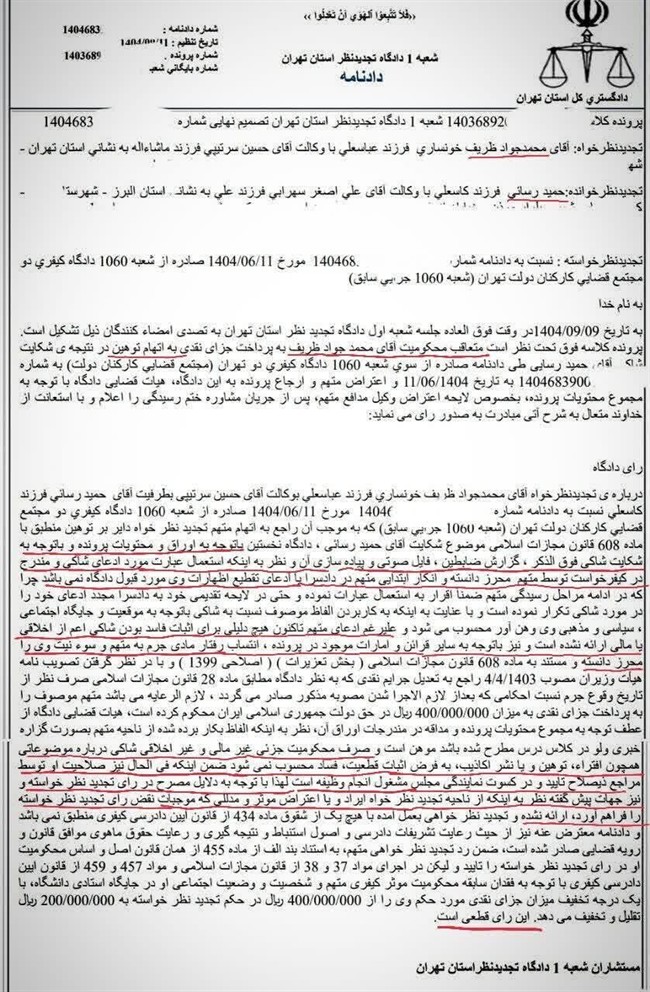 ((فَلاَ تَتَّبِعُواْ الْهَوَى أَنْ تَعْدِلُواْ))
شماره دادنامه : 1404683
تاریخ تنظیم :
شماره پرونده : 1403689
شماره بایگانی شعب
شعبه 1 دادگاه تجدیدنظر استان تهران
دادنامه
دادگستري کل استان تهران
پرونده کلاسه 14036892 شعبه 1 دادگاه تجدیدنظر استان تهران تصمیم نهایی شماره 1404683
تجدیدنظرخواه: آقای محمدجواد ظریف خونساري فرزند عباسعلي با وکالت آقای حسین سرتیپي فرزند ماشاءاله به نشاني استان تهران -
تجدیدنظرخوانده:حمید رسائي فرزند کاسعلي با وکالت آقای علي اصغر سهرابي فرزند علي به نشانی استان البرز -
تجدیدنظرخواسته : نسبت به دادنامه شماره 140468 مورخ 1404/06/11 صادره از شعبه 1060 دادگاه کیفري دو
مجتمع قضایی کارکنان دولت تهران (شعبه 1060 جزیی سابق)
به نام خدا
به تاریخ 1404/09/09در وقت فوق العاده جلسه شعبه اول دادگاه تجدید نظر استان تهران به تصدی امضاء کنندگان ذیل تشکیل است.
پرونده کلاسه فوق تحت نظر است متعاقب محکومیت آقای محمد جواد ظریف به پرداخت جزای نقدی به اتهام توهین در نتیجه ی شکایت
شاکی آقای حمید رسایی طی دادنامه صادره از سوی شعبه 1060 دادگاه کیفری دو تهران (مجتمع قضایی کارکنان دولت) به شماره
1404683906 به تاریخ 11/06/1404 و اعتراض متهم و ارجاع پرونده به این دادگاه، هیات قضایی دادگاه با توجه به
مجموع محتویات پرونده، بخصوص لایحه اعتراض وکیل مدافع متهم، پس از جریان مشاوره ختم رسیدگی را اعلام و با استعانت از
خداوند متعال به شرح آتی مبادرت به صدور رای می نماید:
رای دادگاه
درباره ی تجدیدنظرخواه آقای محمدجواد ظریف خونساري فرزند عباسعلي بوکالت آقای حسین سرتیپي بطرفیت آقای حمید رسائي فرزند
کاسعلي نسبت به دادنامه شماره 14046 مورخ 1404/06/11 صادره از شعبه 1060 دادگاه کیفري دو مجتمع
قضایی کارکنان دولت تهران (شعبه 1060 جزیی سابق) که به موجب آن راجع به اتهام متهم تجدید نظر خواه دایر بر توهین منطبق با
ماده 608 قانون مجازات اسلامی موضوع شکایت آقای حمید رسائی ، دادگاه نخستین باتوجه به اوراق و محتویات پرونده و باتوجه به
شکایت شاکی فوق الذکر ، گزارش ضابطین، فایل صوتی و پیاده سازی آن و نظر به اینکه استعمال عبارت مورد ادعای شاکی و مندرج
در کیفرخواست توسط متهم محرز دانسته و انکار ابتدایی متهم در دادسرا با ادعای تقطیع اظهارات وی مورد قبول دادگاه نمی باشد چرا
که در ادامه مراحل رسیدگی متهم ضمنا اقرار به استعمال عبارات نموده و حتی در لایحه تقدیمی خود به دادسرا مجدد ادعای خود را
در مورد شاکی تکرار نموده است و با عنایت به اینکه به کاربردن الفاظ موصوف نسبت به شاکی باتوجه به موقعیت و جایگاه اجتماعی
، سیاسی و مذهبی وی وهن آور محسوب می شود و علیرغم ادعای متهم تاکنون هیچ دلیلی برای اثبات فاسد بودن شاکی اعم از اخلاقی
یا مالی ارائه نشده است و نیز باتوجه به سایر قرائن و امارات موجود در پرونده ، انتساب رفتار مادی جرم به متهم و سوء نیت وی را
محرز دانسته و مستند به ماده 608 قانون مجازات اسلامی ( بخش تعزیرات ) ( اصلاحی 1399 ) و با در نظر گرفتن تصویب نامه
هیأت وزیران مصوب 4/4/1403 راجع به تعدیل جرایم نقدی که به نظر دادگاه مطابق ماده 28 قانون مجازات اسلامی صرف نظر از
تاریخ وقوع جرم نسبت احکامی که بعداز لازم الاجرا شدن مصوبه مذکور صادر می گردد ، لازم الرعایه می باشد متهم موصوف را
به پرداخت جزای نقدی به میزان 400/000/000 ریال در حق دولت جمهوری اسلامی ایران محکوم کرده است، هیات قضایی دادگاه از
عطف توجه به مجموع محتویات پرونده و مداقه در مندرجات اوراق آن، نظر به اینکه الفاظ بکار برده شده از ناحیه متهم بصورت گزاره
خبری ولو در کلاس درس مطرح شده باشد موهن است و صرف محکومیت جزئی غیر مالی و غیر اخلاقی شاکی درباره موضوعاتی
همچون افتراء، توهین و یا نشر اکاذیب، به فرض اثبات قطعیت، فساد محسوب نمی شود ضمن اینکه فی الحال نیز صلاحیت او توسط
مراجع ذیصلاح تایید و در کسوت نمایندگی مجلس مشغول انجام وظیفه است لهذا با توجه به دلایل مصرح در رای تجدید نظر خواسته و
نیز جهات پیش گفته نظر به اینکه از ناحیه تجدید نظر خواه ایراد و یا اعتراض موثر و مدللی که موجبات نقض رای تجدید نظر خواسته
را فراهم آورد، ارائه نشده و تجدید نظر خواهی بعمل آمده با هیچ یک از شقوق ماده 434 از قانون آیین دادرسی کیفری منطبق نمی باشد
و دادنامه معترض عنه نیز از حیث رعایت تشریفات دادرسی و اصول استنباط و نتیجه گیری و رعایت حقوق ماهوی موافق قانون و
رویه قضایی صادر شده است، ضمن رد تجدید نظر خواهی متهم، به استناد بند الف از ماده 455 از همان قانون اصل و اساس محکومیت
او در رای تجدید نظر خواسته را تایید و لیکن در اجرای مواد 37 و 38 از قانون مجازات اسلامی و مواد 457 و 459 از قانون ایین
دادرسی کیفری با توجه به فقدان سابقه محکومیت موثر کیفری متهم و شخصیت و وضعیت اجتماعی او در جایگاه استادی دانشگاه، با
یک درجه تخفیف میزان جزای نقدی مورد حکم وی را از 400/000/000 ریال در حکم تجدید نظر خواسته به 200/000/000 ریال
تقلیل و تخفیف می دهد. این رای قطعی است.
مستشاران شعبه 1 دادگاه تجدیدنظراستان تهران